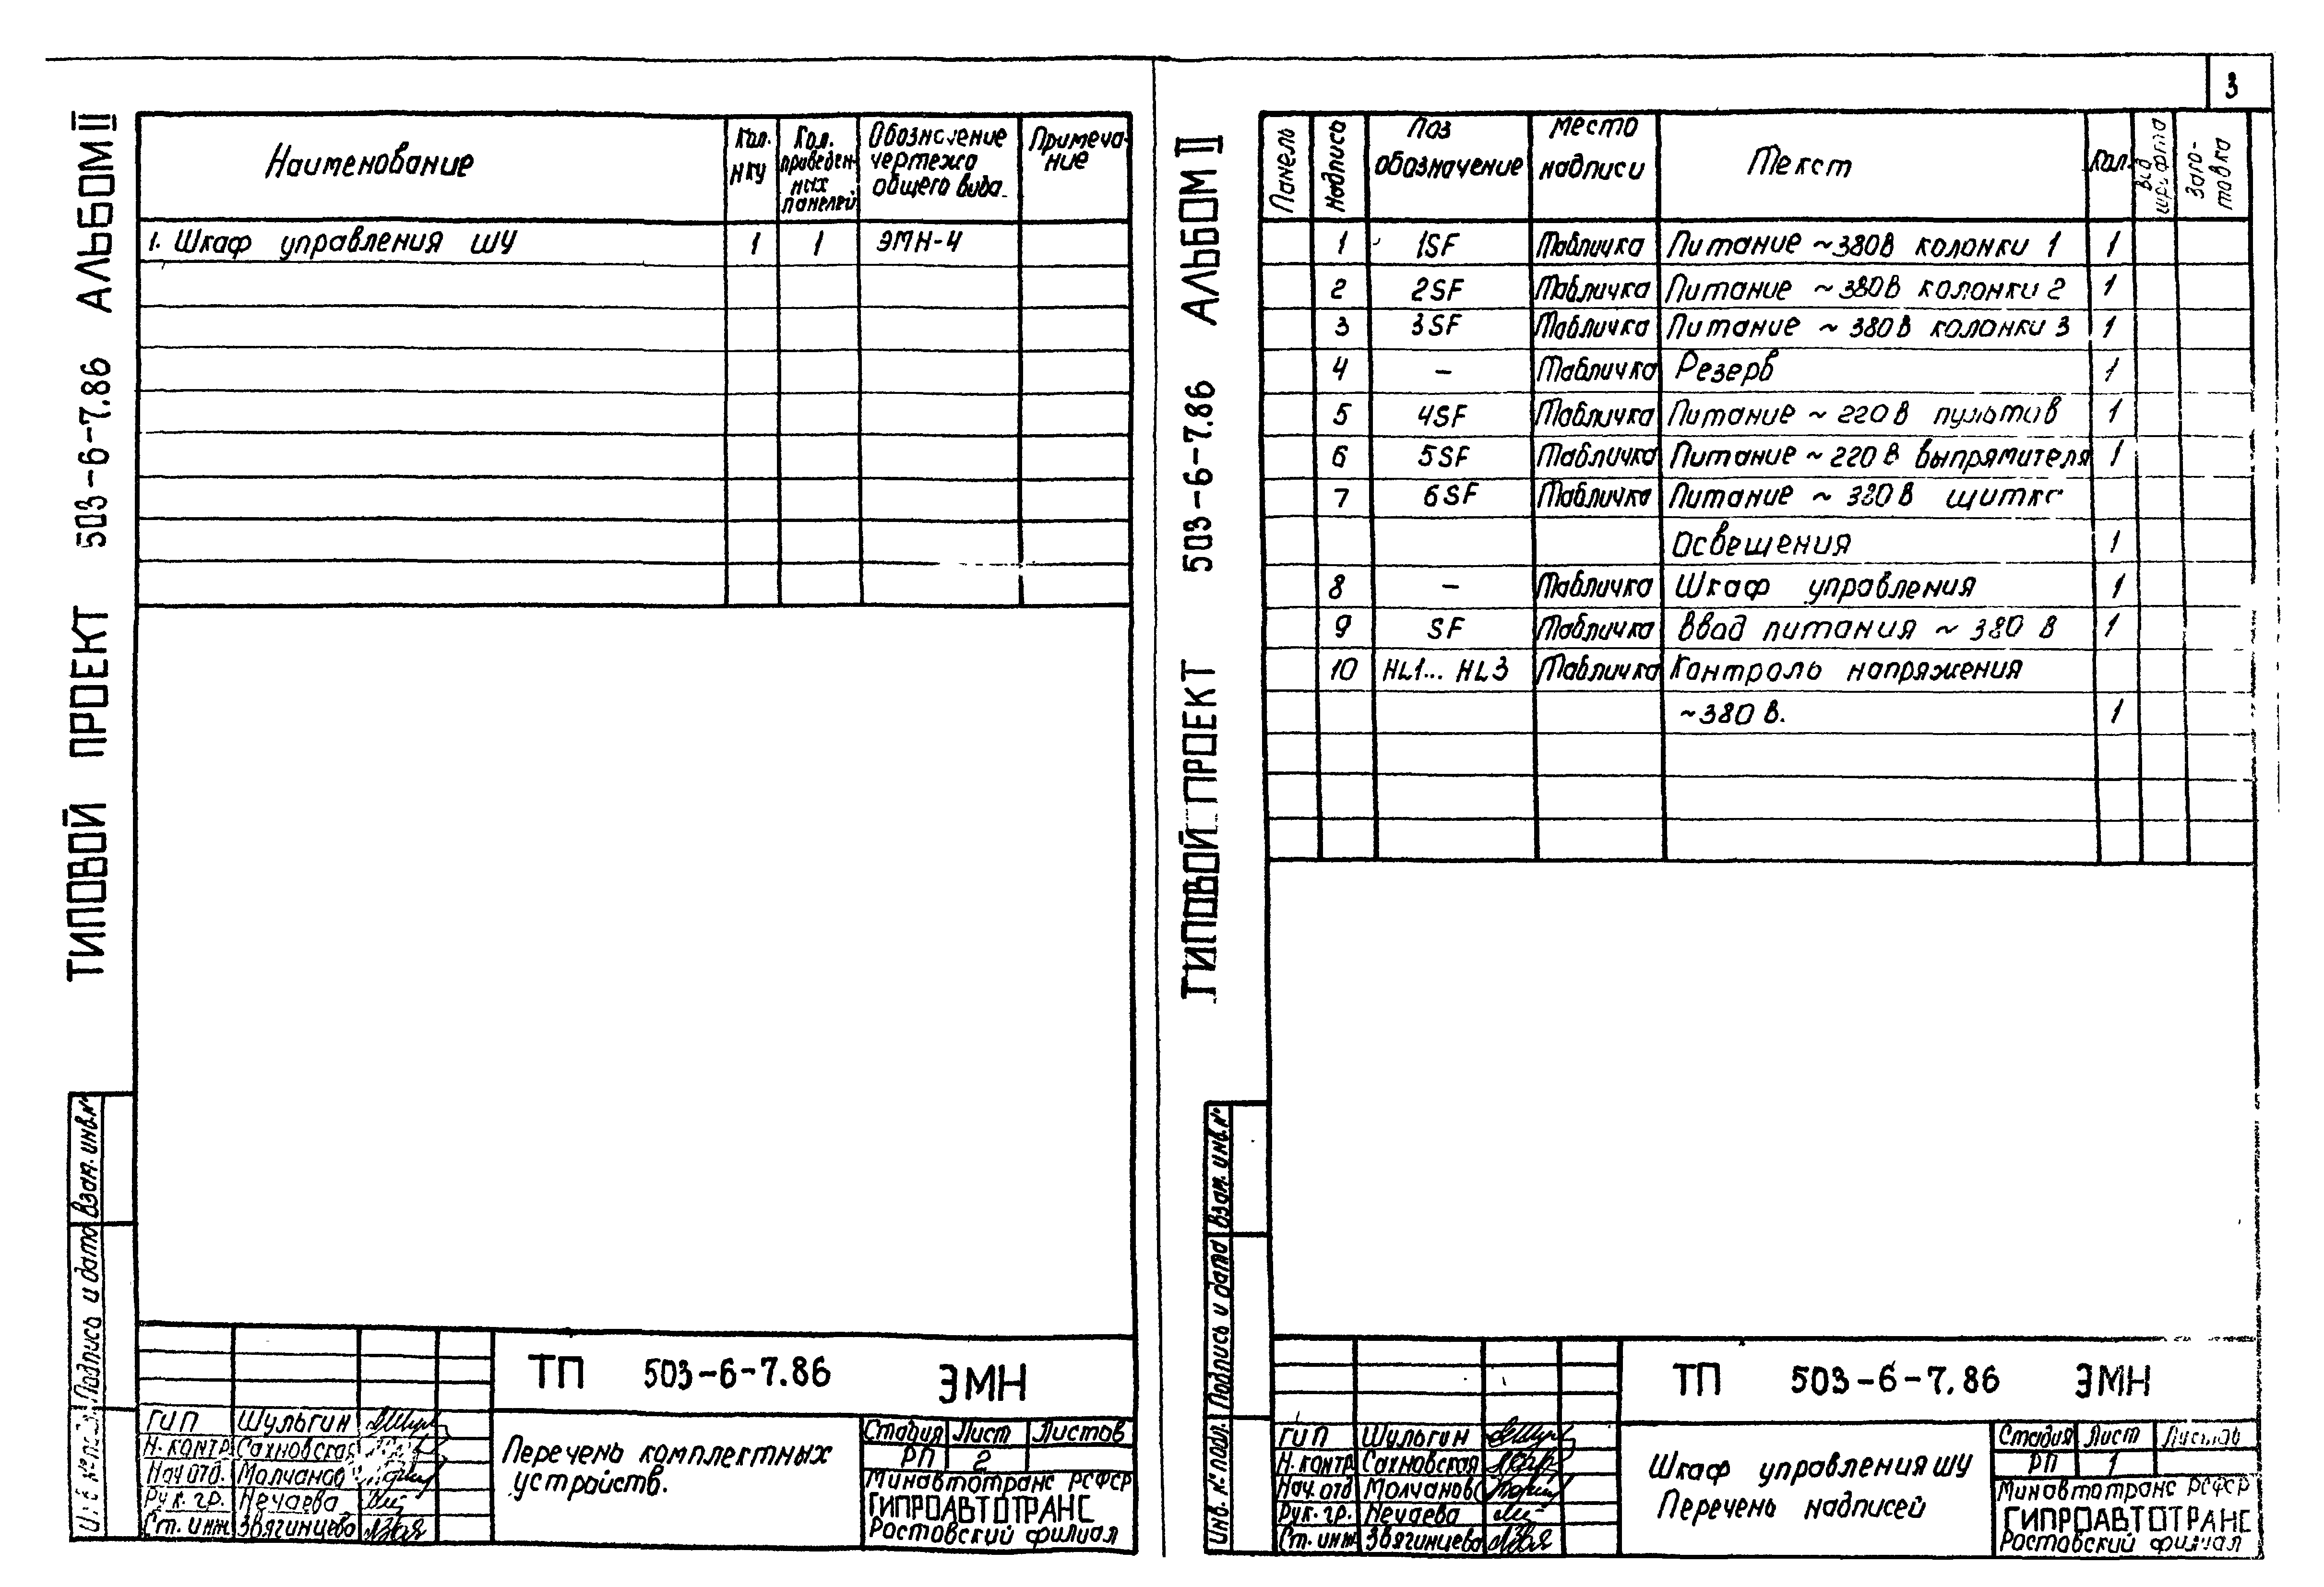 3
ТИПОВОЙ ПРОЕКТ 503-6-7.86 АЛЬБОМ II
Наименование
Кол. НКУ
Кол. приведенных панелей
Обозначение чертежа общего вида
Примечание
1. Шкаф управления ШУ 1 1 ЭМН-4
Взам. инв. №
Подпись и дата
ТП 503-6-7.86 ЭМН
ГИП Шульгин
Н. контр Сахновская
Нач отд. Молчанов
Рук. гр. Нечаева
Ст. инж Звягинцева
Перечень комплектных
устройств.
Стадия Лист Листов
РП 2
Минавтотранс РСФСР
ГИПРОАВТОТРАНС
Ростовский филиал
ТИПОВОЙ ПРОЕКТ 503-6-7.86 АЛЬБОМ II
Панель
Надпись
Поз обозначение
Место надписи
Текст
Кол.
Вид шрифта
Заготовка
1 1SF Табличка Питание ~380В колонки 1 1
2 2SF Табличка Питание ~ 380В колонки 2 1
3 3SF Табличка Питание ~ 380 В колонки 3 1
4 – Табличка Резерв 1
5 4SF Табличка Питание ~ 220 В пультов 1
6 5SF Табличка Питание ~ 220 В выпрямителя 1
7 6SF Табличка Питание ~ 380 В щитка
Освещения 1
8 – Табличка Шкаф управления 1
9 SF Табличка Ввод питания ~ 380 В 1
10 HL1... HL3 Табличка Контроль напряжения
~380 В. 1
Взам. инв. №
Подпись и дата
Инв. № подл.
ТП 503-6-7.86 ЭМН
ГИП Шульгин
Н. контр Сахновская
Нач. отд Молчанов
Рук. гр. Нечаева
Ст. инж Звягинцева
Шкаф управления ШУ
Перечень надписей
Стадия Лист Листов
РП 1
Минавтотранс РСФСР
ГИПРОАВТОТРАНС
Ростовский филиал